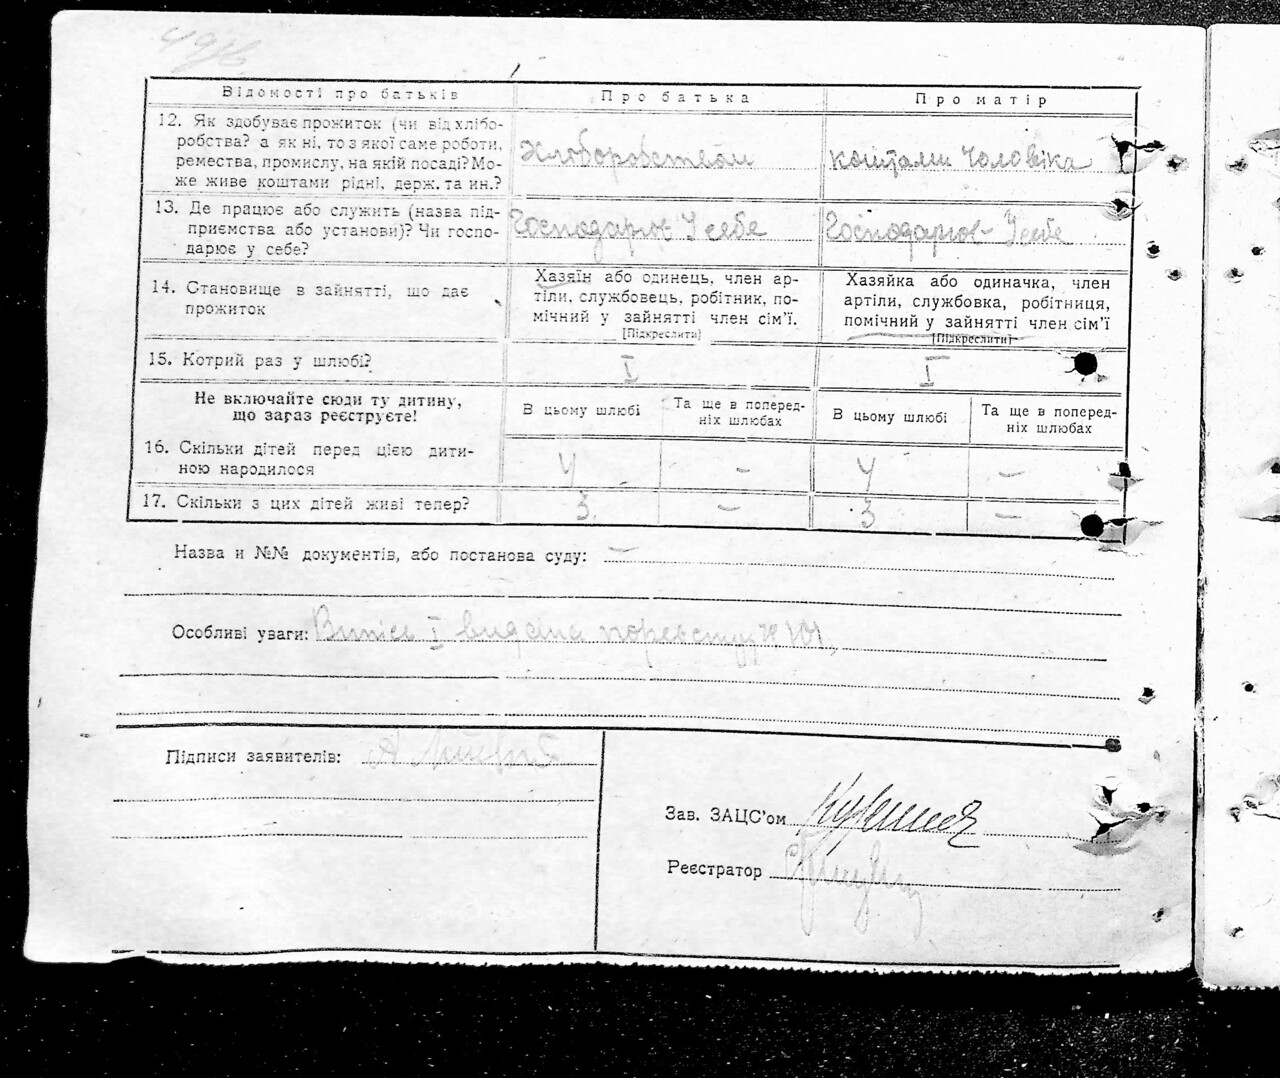 Відомості про батьків
Про батька
Про матір
12. Як здобуває прожиток (чи від хлібо-
робства? а як ні, то з якої саме роботи,
ремества, промислу, на якій посаді? Мо-
же живе коштами рідні, держ. та ин.?
хлоборобством
коштами чоловіка
13. Де працює або служить (назва під-
приємства або установи)? Чи госпо-
дарює у себе?
Господарює У себе
Господарює У себе
14. Становище в зайнятті, що дає
прожиток
Хазяїн або одинець, член ар-
тіли, службовець, робітник, по-
мічний у зайнятті член сім’ї.
[Підкреслити]
Хазяйка або одиначка, член
артіли, службовка, робітниця,
помічний у зайнятті член сім’ї
[Підкреслити]
15. Котрий раз у шлюбі?
I
I
Не включайте сюди ту дитину,
що зараз реєструєте!
В цьому шлюбі
Та ще в поперед-
ніх шлюбах
В цьому шлюбі
Та ще в поперед-
ніх шлюбах
16. Скільки дітей перед цією дити-
ною народилося
4
–
4
–
17. Скільки з цих дітей живі тепер?
3
–
3
–
Назва и №№ документів, або постанова суду: –
Особливі уваги: Випись I видана
Підписи заявителів:
Зав. ЗАЦС’ом
Реєстратор